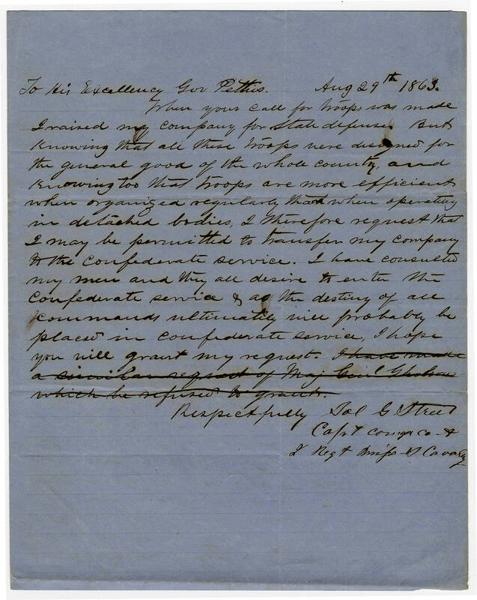 To His Excellency Gov Pettus. Aug 29th 1863.
When your call for troops was made
I raised my company for State defense. But
Knowing that all these troops were designed for
the general good of the whole country and
Knowing too that troops are more efficient
when organized regularly than when operating
in detached bodies, I therefore request that
I may be permitted to transfer my company
to the Confederate service. I have consulted
my men and they all desire to enter the
Confederate service & as the destiny of all
commands ultimately will probably be
placed in Confederate service, I hope
you will grant my request. I have made
a similar request of Maj Genl Gholson
which he refused to grant.
Respectfully Sol G Street
Capt comg co
2 Regt Miss S Cavalry